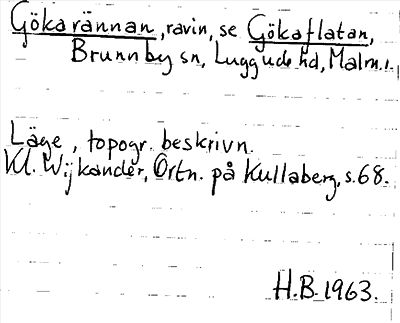 Gökarännan, ravin, se Gökaflatan,
Brunnby sn, Luggude hd, Malm.l.
Läge, topogr. beskrivn.
Kl. Wijkander, Ortn. på Kullaberg, s.68.
H.B. 1963.